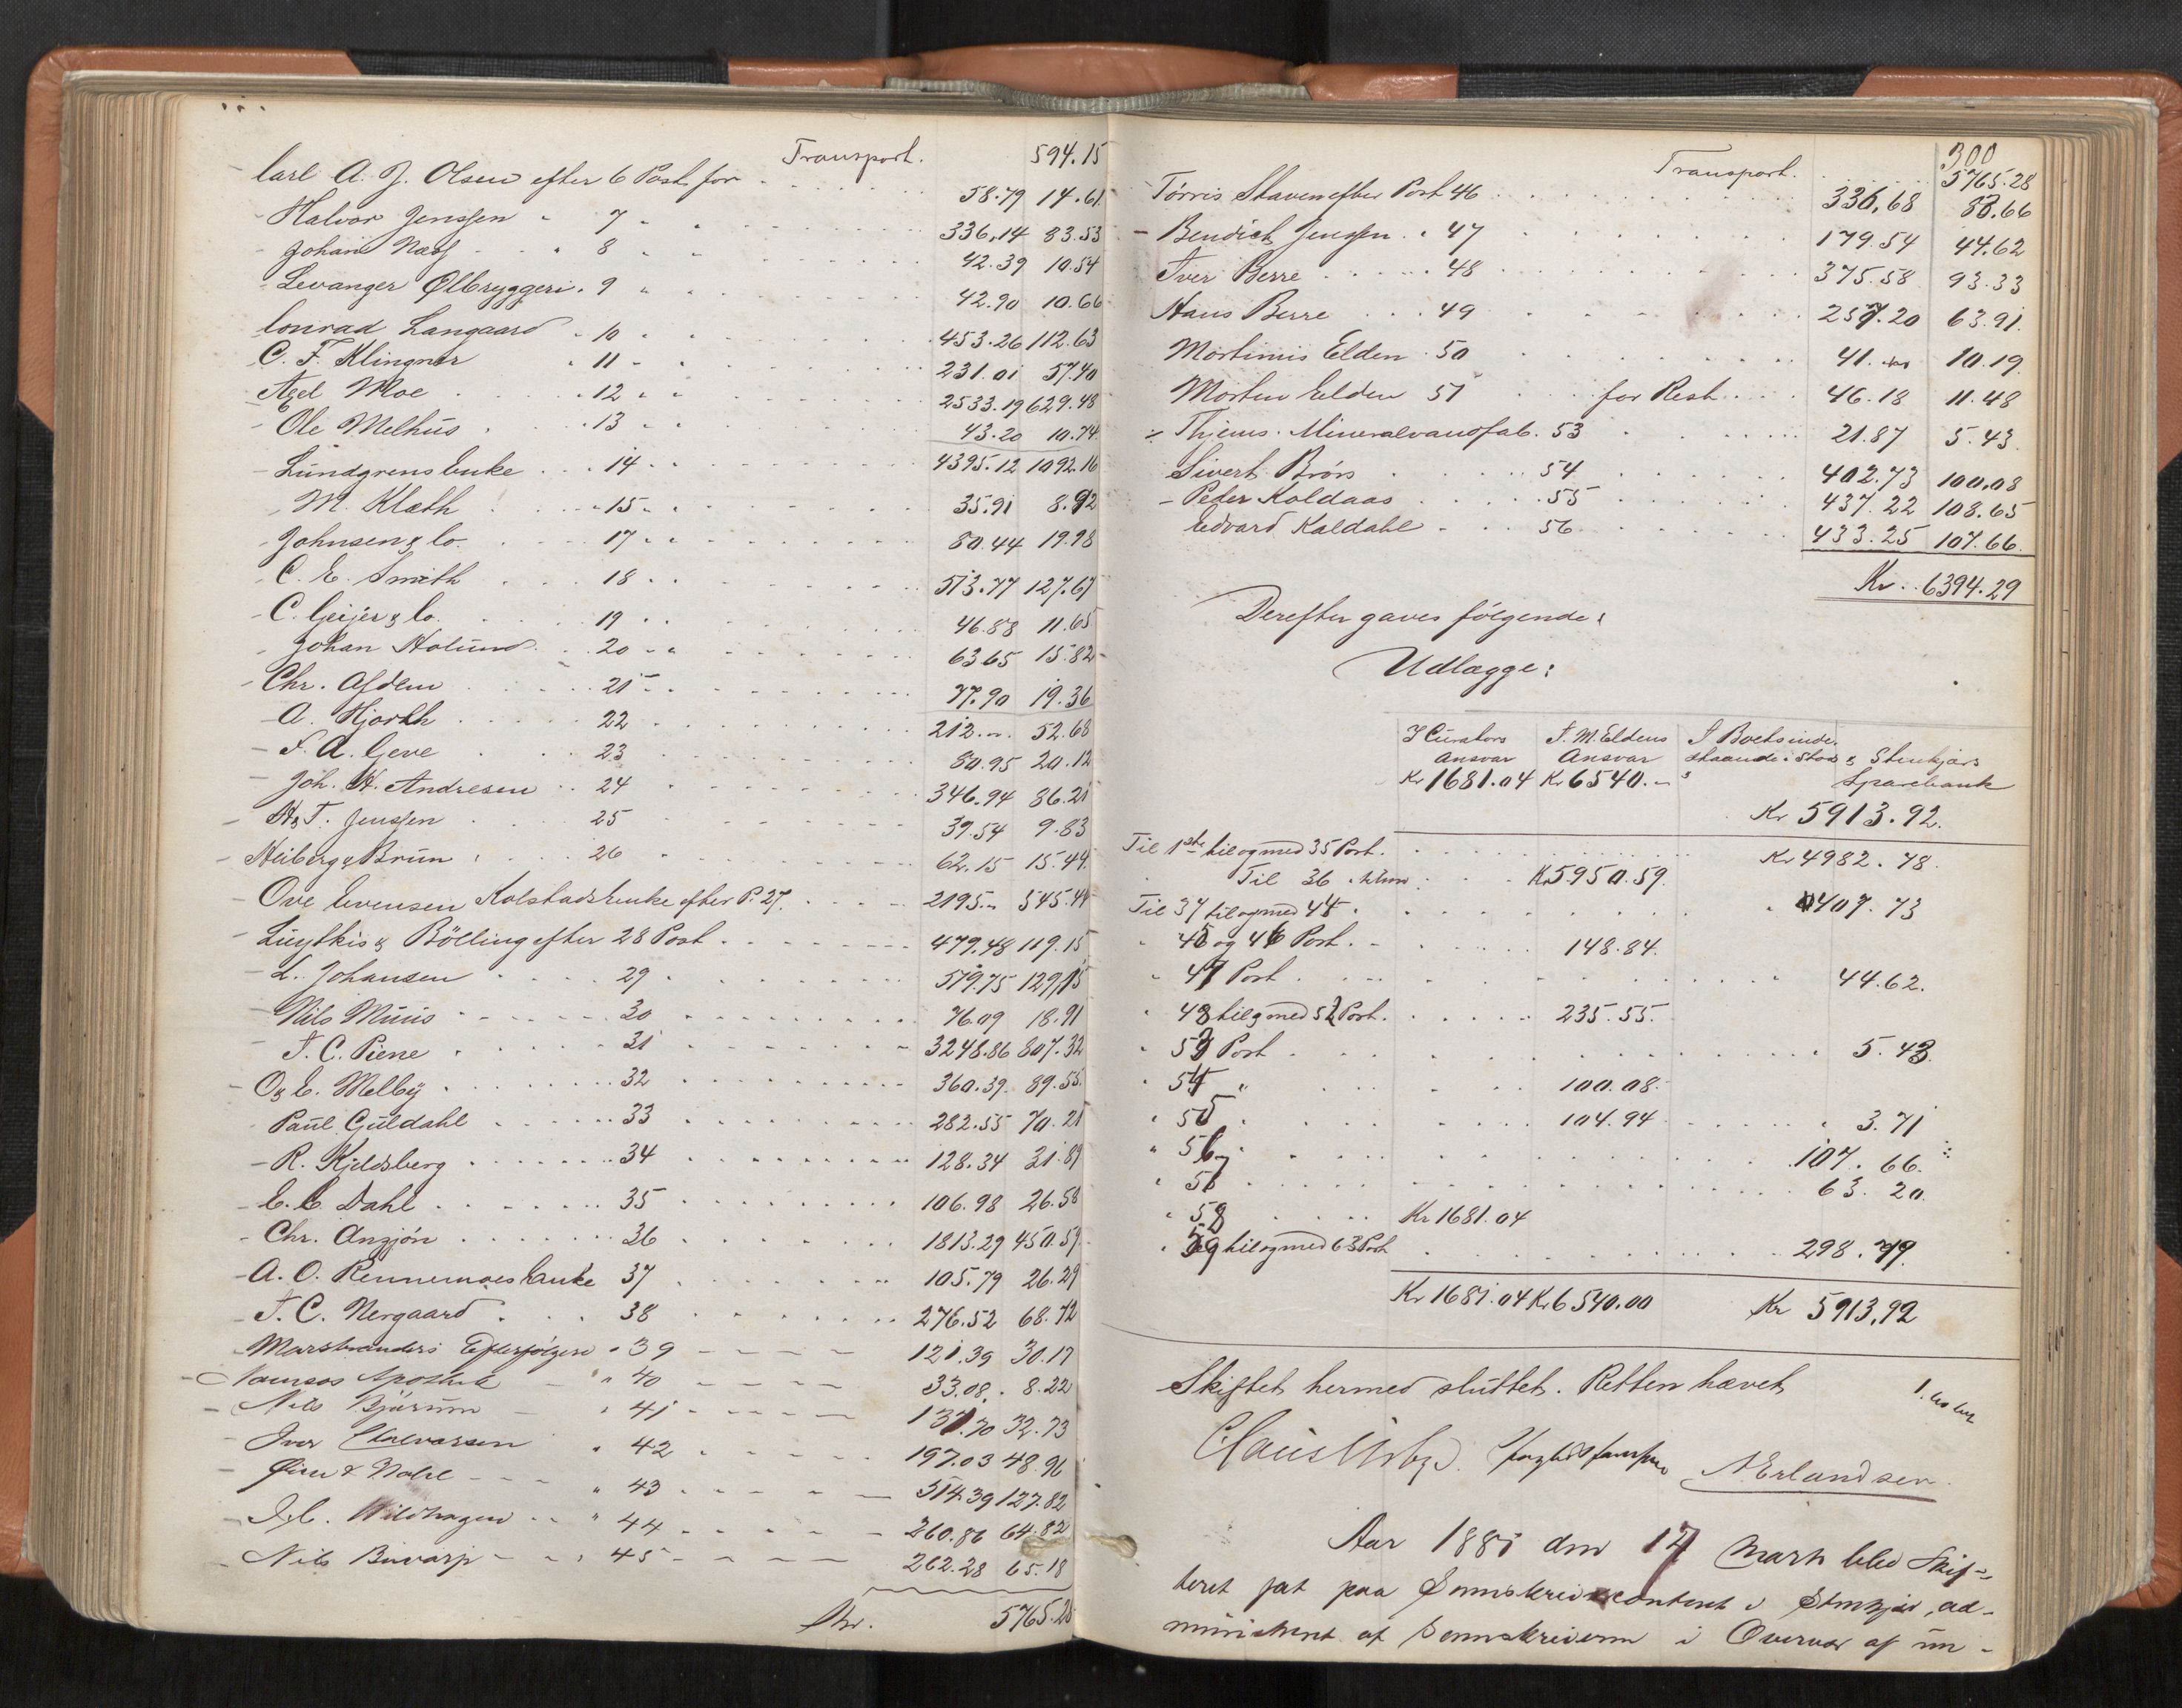 Transport. 594.15
Carl A. J. Olsen efter 6 Post for 58.79 14.61
Halvor Jenssen " 7 " " 336.14 83.53
Johan Næss " 8 " " 42.39 10.54
Levanger Ølbryggeri " 9 " 42.90 10.66
Conrad Langaard " 10 " 453.26 112.63
C. F. Klingner " 11 " " 231.01 57.40
Axel Moe " 12 " " 2533.19 629.48
Ole Melhus " 13 " " 43.20 10.74
Lundgrens Enke " 14 " " 4395.12 1092.16
M. Klæth " 15 " " 35.91 8.92
Johnsen & Co. 17 " " 80.44 19.98
C. E. Smith 18 " " 513.77 127.67
C. Geijer & Co. 19 " " 46.88 11.65
Johan Holund 20 " " 63.65 15.82
Chr. Afdem 21 " " 77.90 19.36
A. Hjorth 22 212 " 52.68
F. A. Geve 23 80.95 20.12
Joh. H. Andresen 24 346.94 86.21
H. T. Jenssen 25 39.54 9.83
Heiberg & Brun 26 62.15 15.44
Ove Evensen Kolstads Enke efter P. 27. 2195.– 545.44
Luytkis & Bölling efter 28 Post 479.48 119.15
L. Johansen 29 519.75 129.15
Nils Muus 30 76.09 18.91
I. C. Piene 31 3248.86 807.32
O. & E. Melby 32 360.39 89.55
Paul Guldahl 33 282.55 70.21
R. Kjeldsberg 34 128.34 31.89
E. C. Dahl 35 106.98 26.58
Chr. Anzjön 36 1813.29 450.59
A. O. Rennemoes Enke 37 105.79 26.29
I. C. Nergaard 38 276.52 68.72
Marstranders Efterfølgere " 39 121.39 30.17
Namsos Apothek " 40 33.08 8.22
Nils Bjørum " 41 131.70 32.73
Iver Halvorsen " 42 197.03 48.96
& " 43 514.39 127.82
Wildhagen " 44 260.86 64.82
Nils Buvarp " 45 262.28 65.18
5765.28
300
Transport. 5765.28
Tørris Staven efter Post 46 336.68 83.66
Bendich Jenssen " 47 179.54 44.62
Iver Berre 48 375.58 93.33
Hans Berre 49 257.20 63.91
Mortinus Elden 50 41. " 10.19
Morten Elden 51 for Rest 46.18 11.48
Thjems Mineralvandfab. 53 21.87 5.43
Sivert Brørs 54 402.73 100.08
Peder Koldaas 55 437.22 108.65
Edvard Kaldahl 56 433.25 107.66
Kr. 6394.29
Derefter gaves følgende:
Udlægge:
I Curators I. M. Eldens I Boets inde-
Ansvar Ansvar staaende i Stods & Stenkjærs
Kr 1681.04 Kr 6540.– Sparebank
Kr 5913.92.
Til 1ste til og med 35 Post. Kr 4982.78
Til 36 Kr 5950.59.
Til 37 til og med 44 " 407.73
" 45 og 46 Post. 148.84.
" 47 Post 44.62.
" 48 til og med 52 Post. 235.55.
" 53 Post 5.43.
" 54 " 100.08.
" 55 104.94 3.71
" 56 107.66.
" 57 63.20.
" 58 Kr 1681.04
" 59 til og med 63 Post 298.79
Kr 1681.04 Kr 6540.00 Kr 5913.92
Skiftet hermed sluttet. Retten hævet
N. Erlandsen
Aar 1881 den 17 Marts blev Skif-
teret sat paa Sorenskrivercontoret i Stenkjær, ad-
ministreret af Sorenskriveren i Overvær af un-